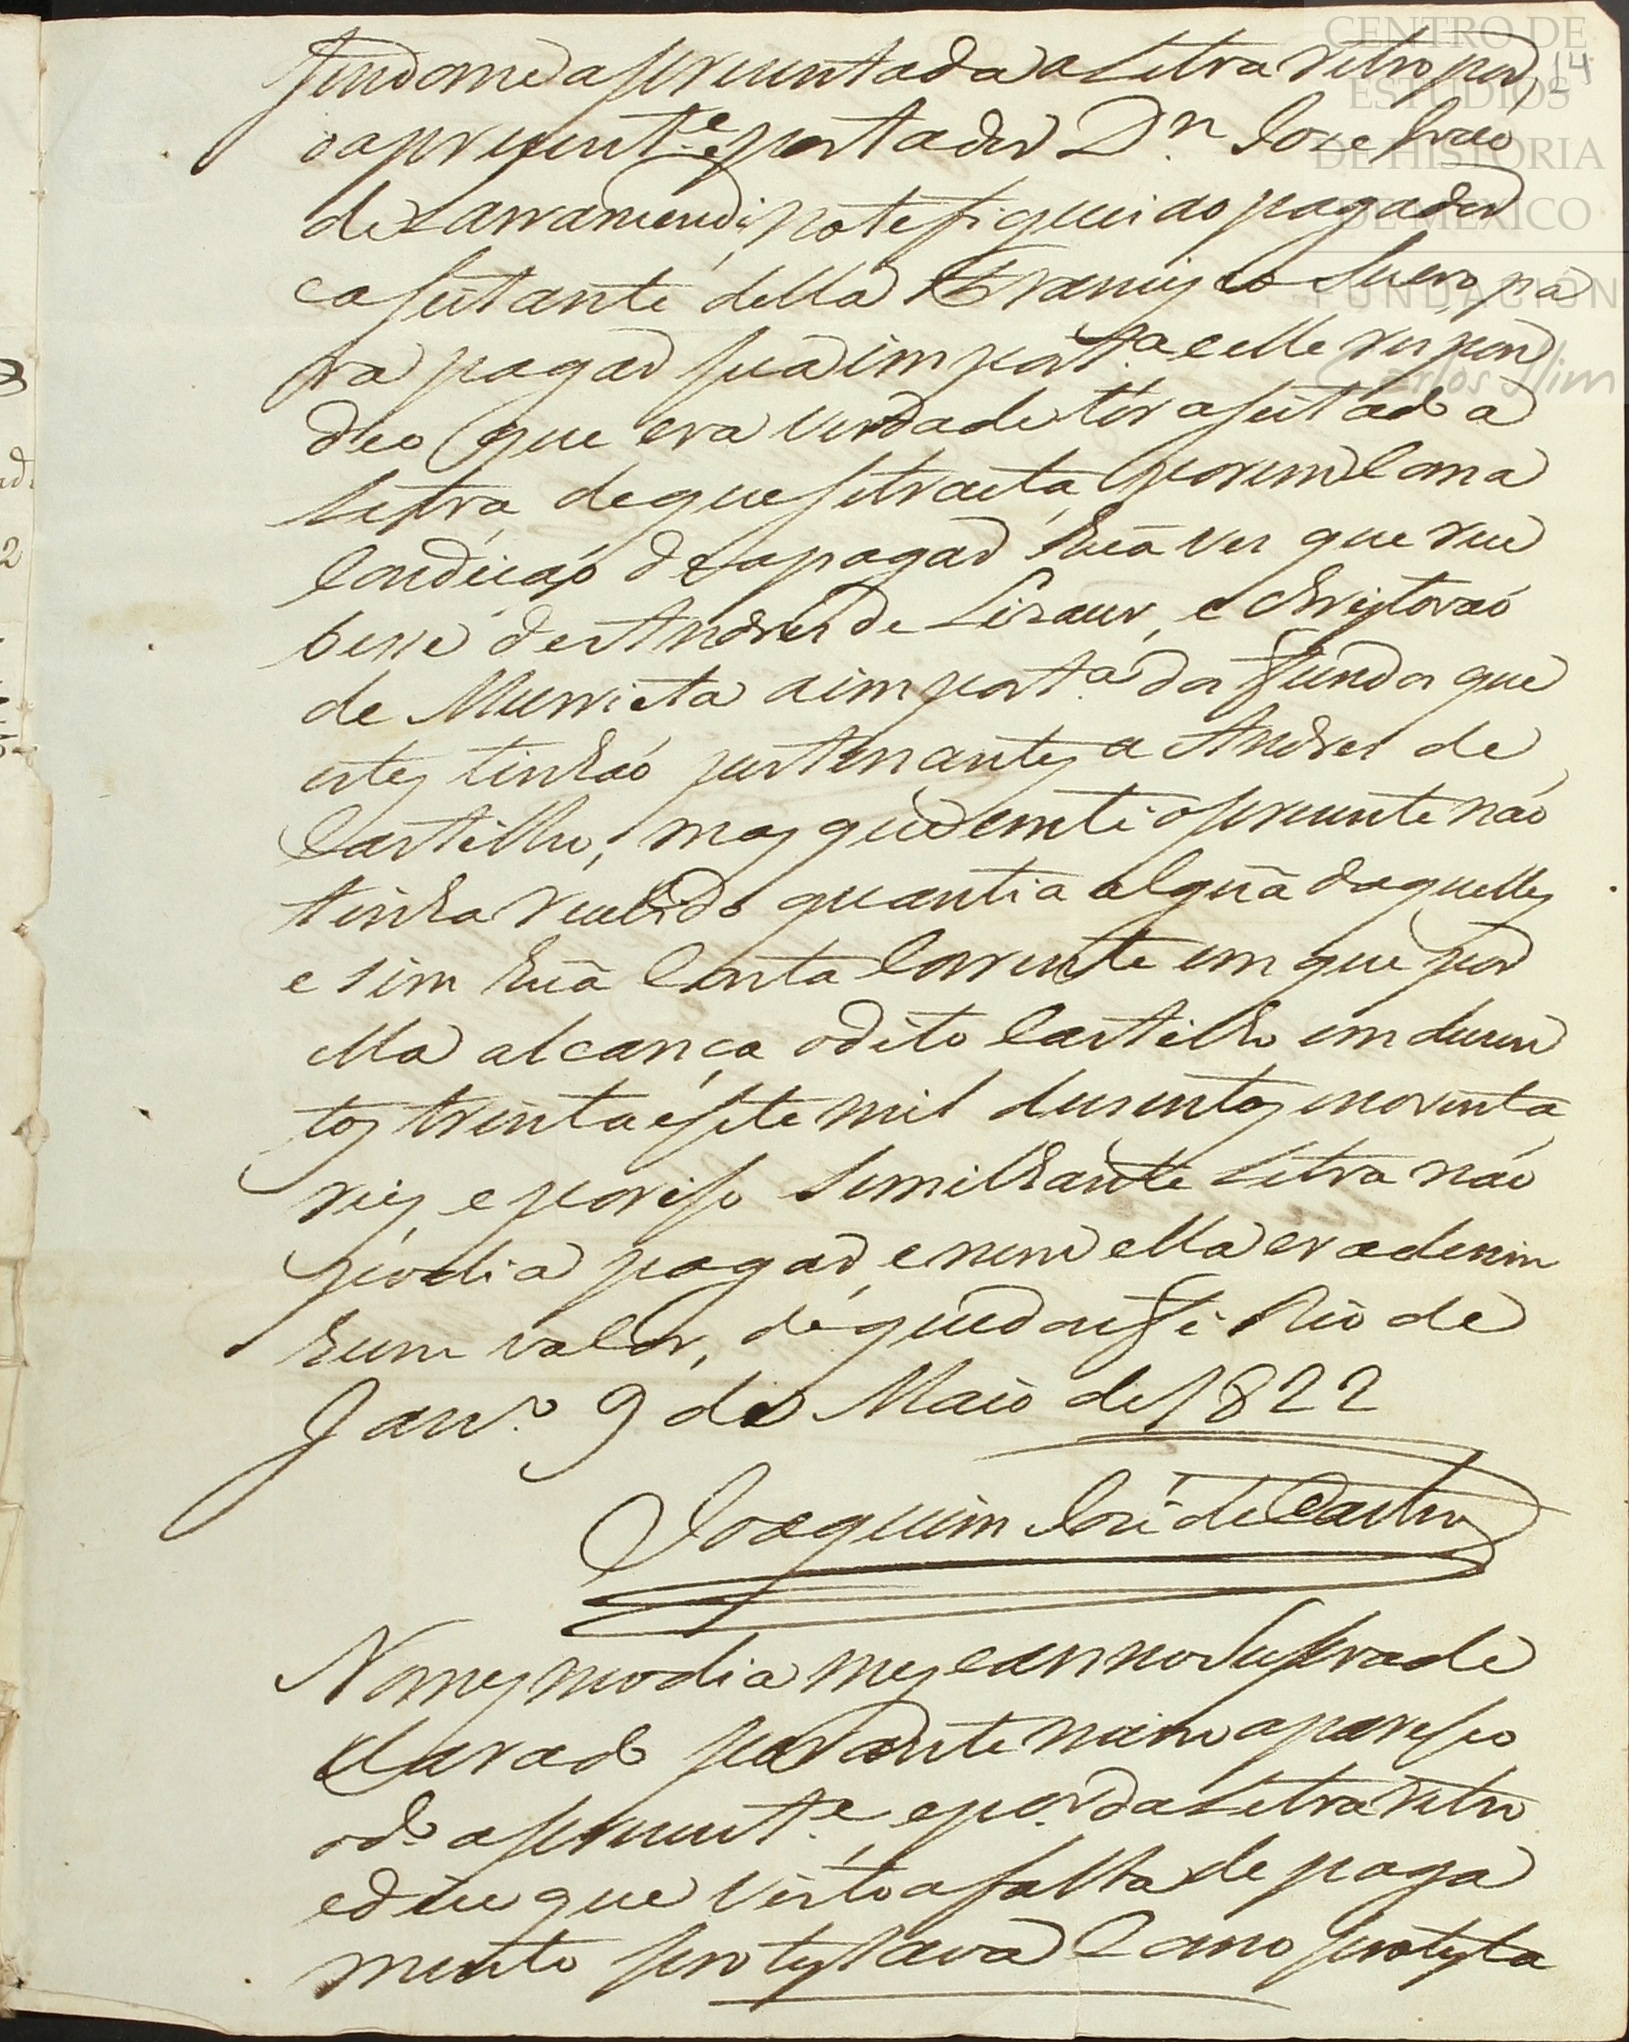 CENTRO DE
ESTUDIOS
DE HISTORIA
DE MÉXICO
FUNDACIÓN
Carlos Slim
14
Sendome aprezentada a Letra retro por
o aprezent.e e portador D.n Joze
de Larramendi, notefiquei ao pagador
e aseitante della Francisco Suero, pa
ra pagar sua import.a e elle respon
deo que era verdade ter aseitado a
Letra de que se tracta, porem com a
Condição de a pagar hũa ves que rece
besse de Andres de Lizaur, e Christovaõ
de Murrieta a import.a da funda que
estes tinhaõ pertenante a Andres de
Castilho, mas que demte o prezente naõ
tinha recebido quantia alguã daquelles
e sim huã Conta Corrente em que por
ella alcança o dito Castilho em duzen
tos trinta e sete mil duzentos e noventa
reis, e por iso Semilhante Letra naõ
podia pagar, e nem ella era de nin
hum valor, de que dou fé Rio de
Janr.o 9 de Maio de 1822
Joaquim José de Castro
No mesmo dia mes e anno Supra de
clarado perante mim apareseo
o d.o aprezent.e e por.dor da Letra retro
e dice que visto a falta de paga
mento protestava Como protesta